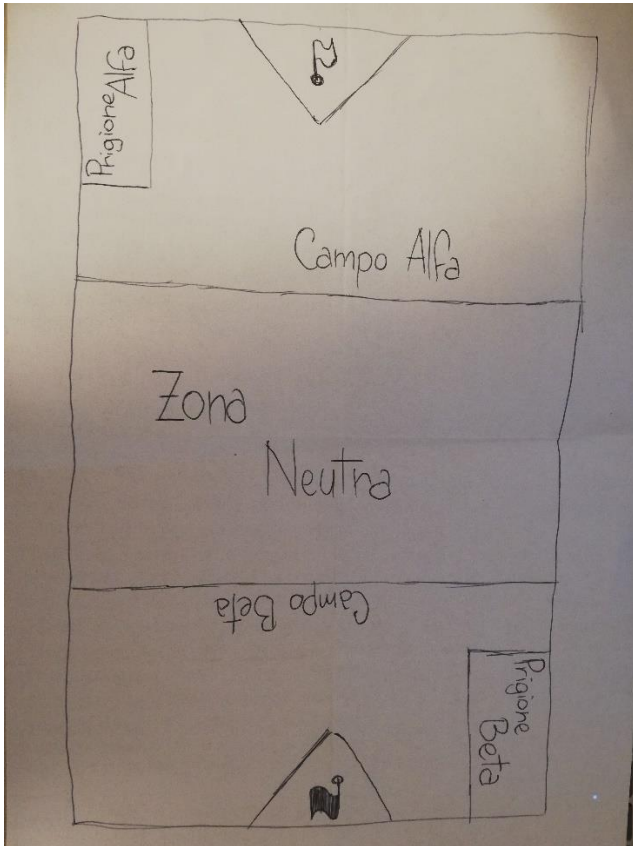 Prigione Alfa
Campo Alfa
Zona
Neutra
Campo Beta
Prigione
Beta